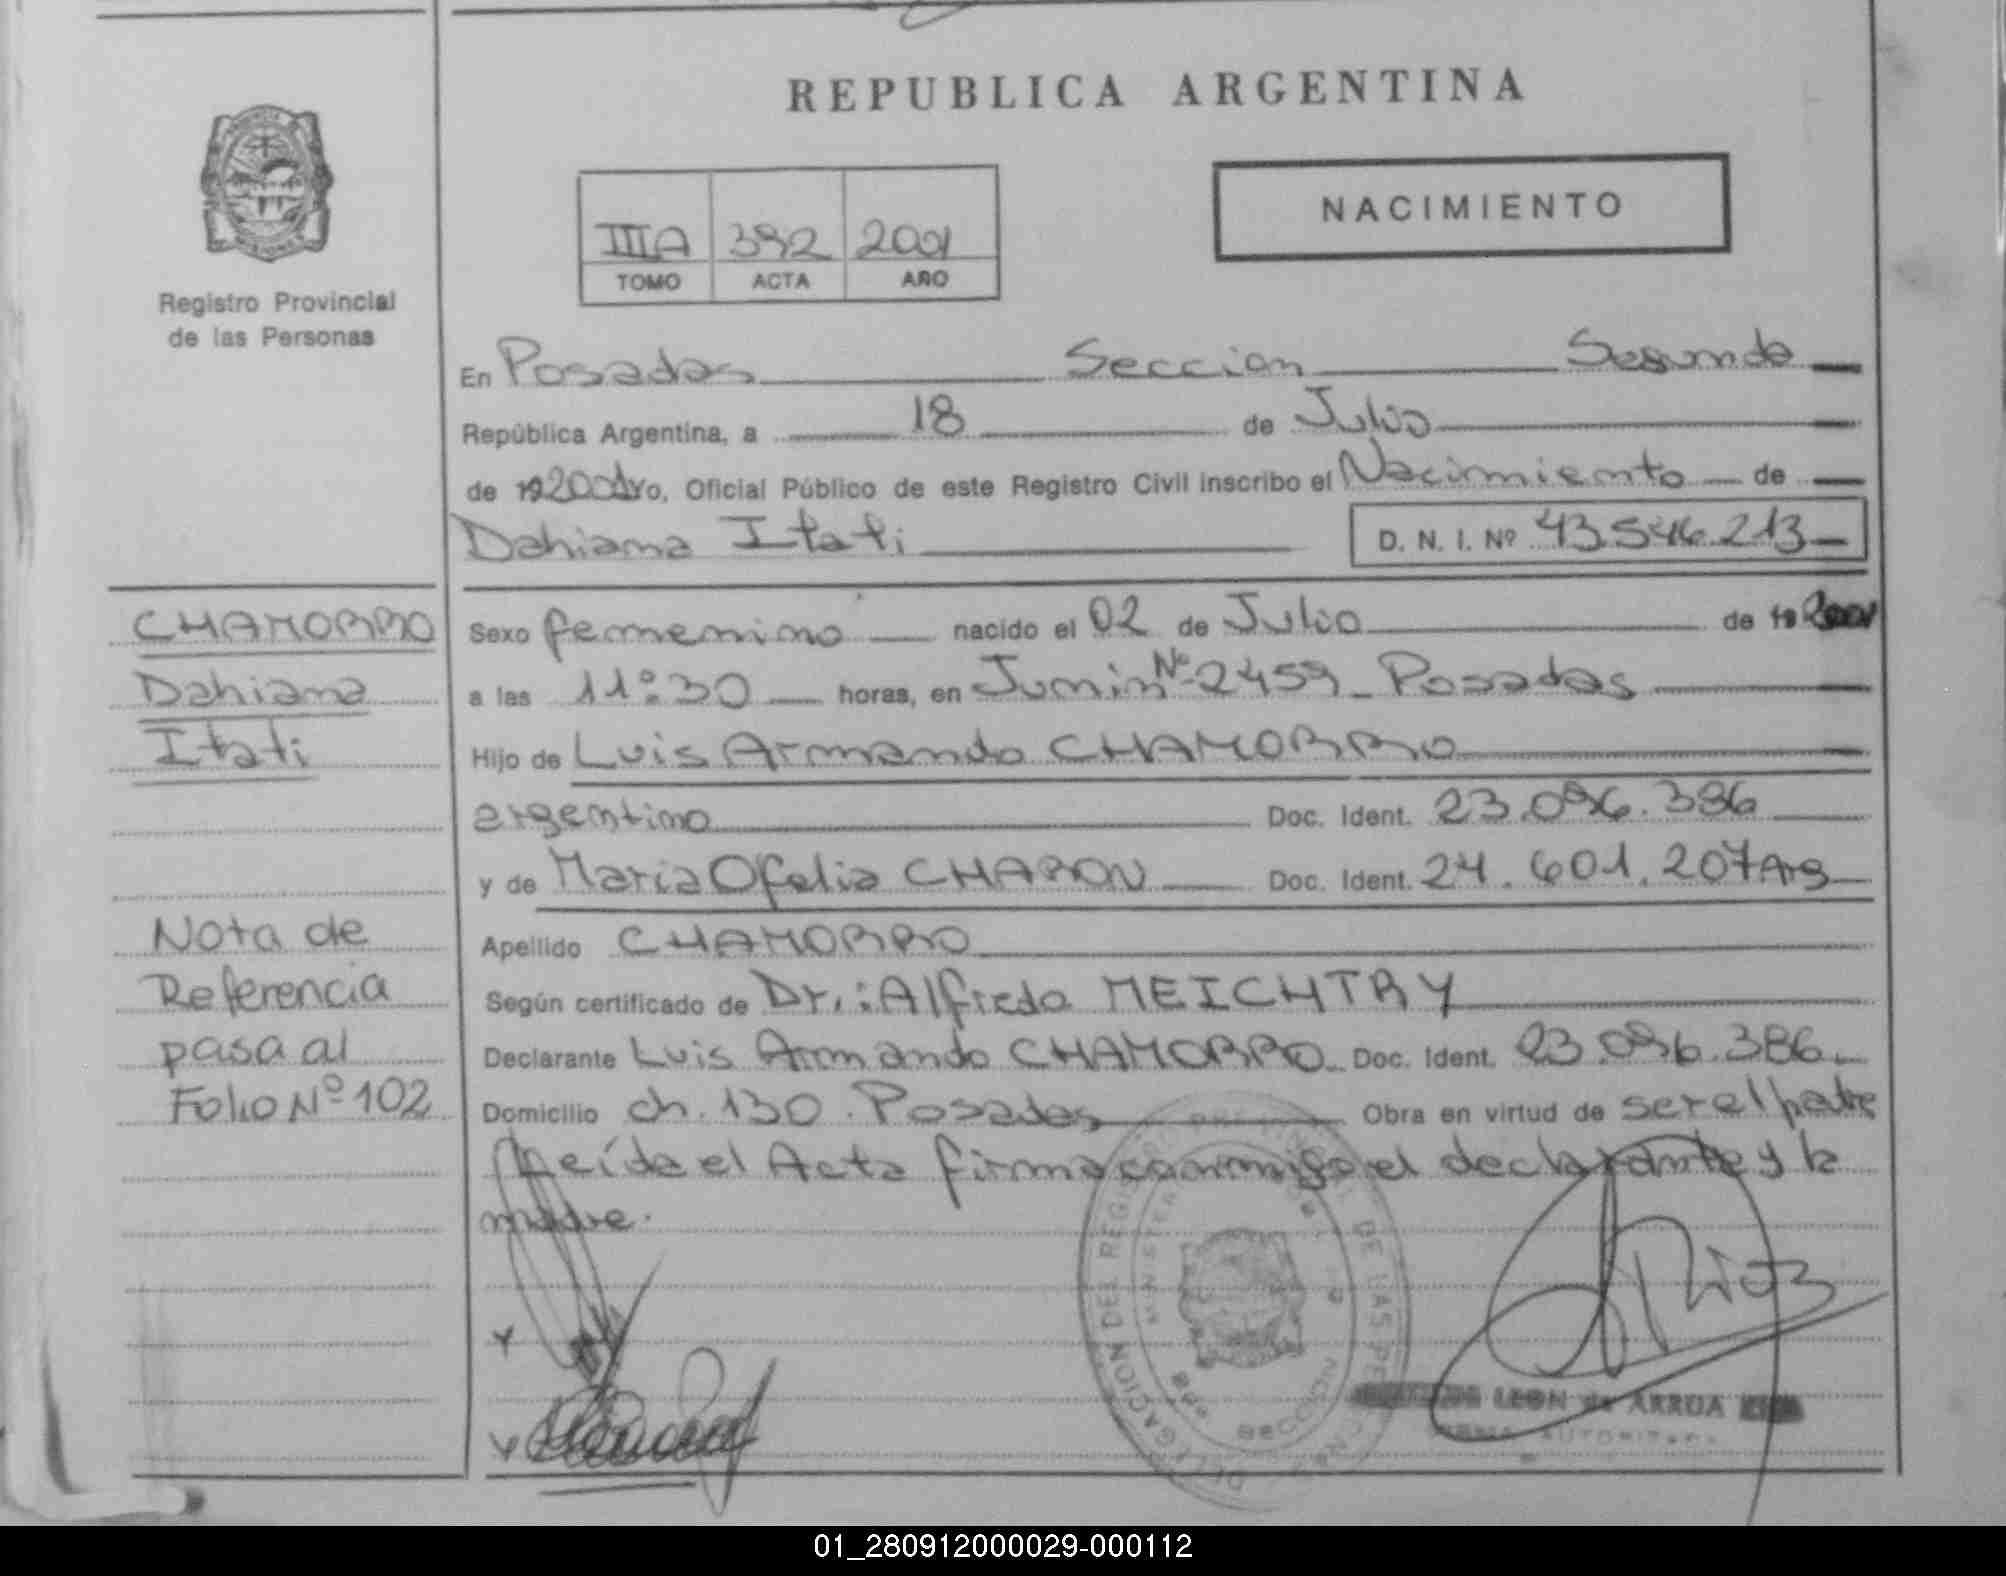 REPUBLICA ARGENTINA
NACIMIENTO
IIIA 392 2001
TOMO ACTA AÑO
Registro Provincial
de las Personas
En Posadas Seccion Segunda
República Argentina, a 18 de Julio
de 192001 yo, Oficial Público de este Registro Civil inscribo el Nacimiento de
Dahiana Itati D. N. I. Nº 43.546.213
CHAMORRO
Dahiana
Itati
Sexo femenino nacido el 02 de Julio de 192001
a las 11:30 horas, en Junin Nº 2459 Posadas
Hijo de Luis Armando CHAMORRO
argentino Doc. Ident. 23.096.386
y de Maria Ofelia CHARON Doc. Ident. 24.601.207 Arg
Apellido CHAMORRO
Según certificado de Dr.: Alfredo MEICHTRY
Declarante Luis Armando CHAMORRO Doc. Ident. 23.096.386
Domicilio ch. 130. Posadas Obra en virtud de ser el padre
Leída el Acta firma conmigo el declarante y la
madre.
Nota de
Referencia
pasa al
Folio Nº 102
DELEGACION DEL REGISTRO DE LAS
LEON de ARRUA
01_280912000029-000112